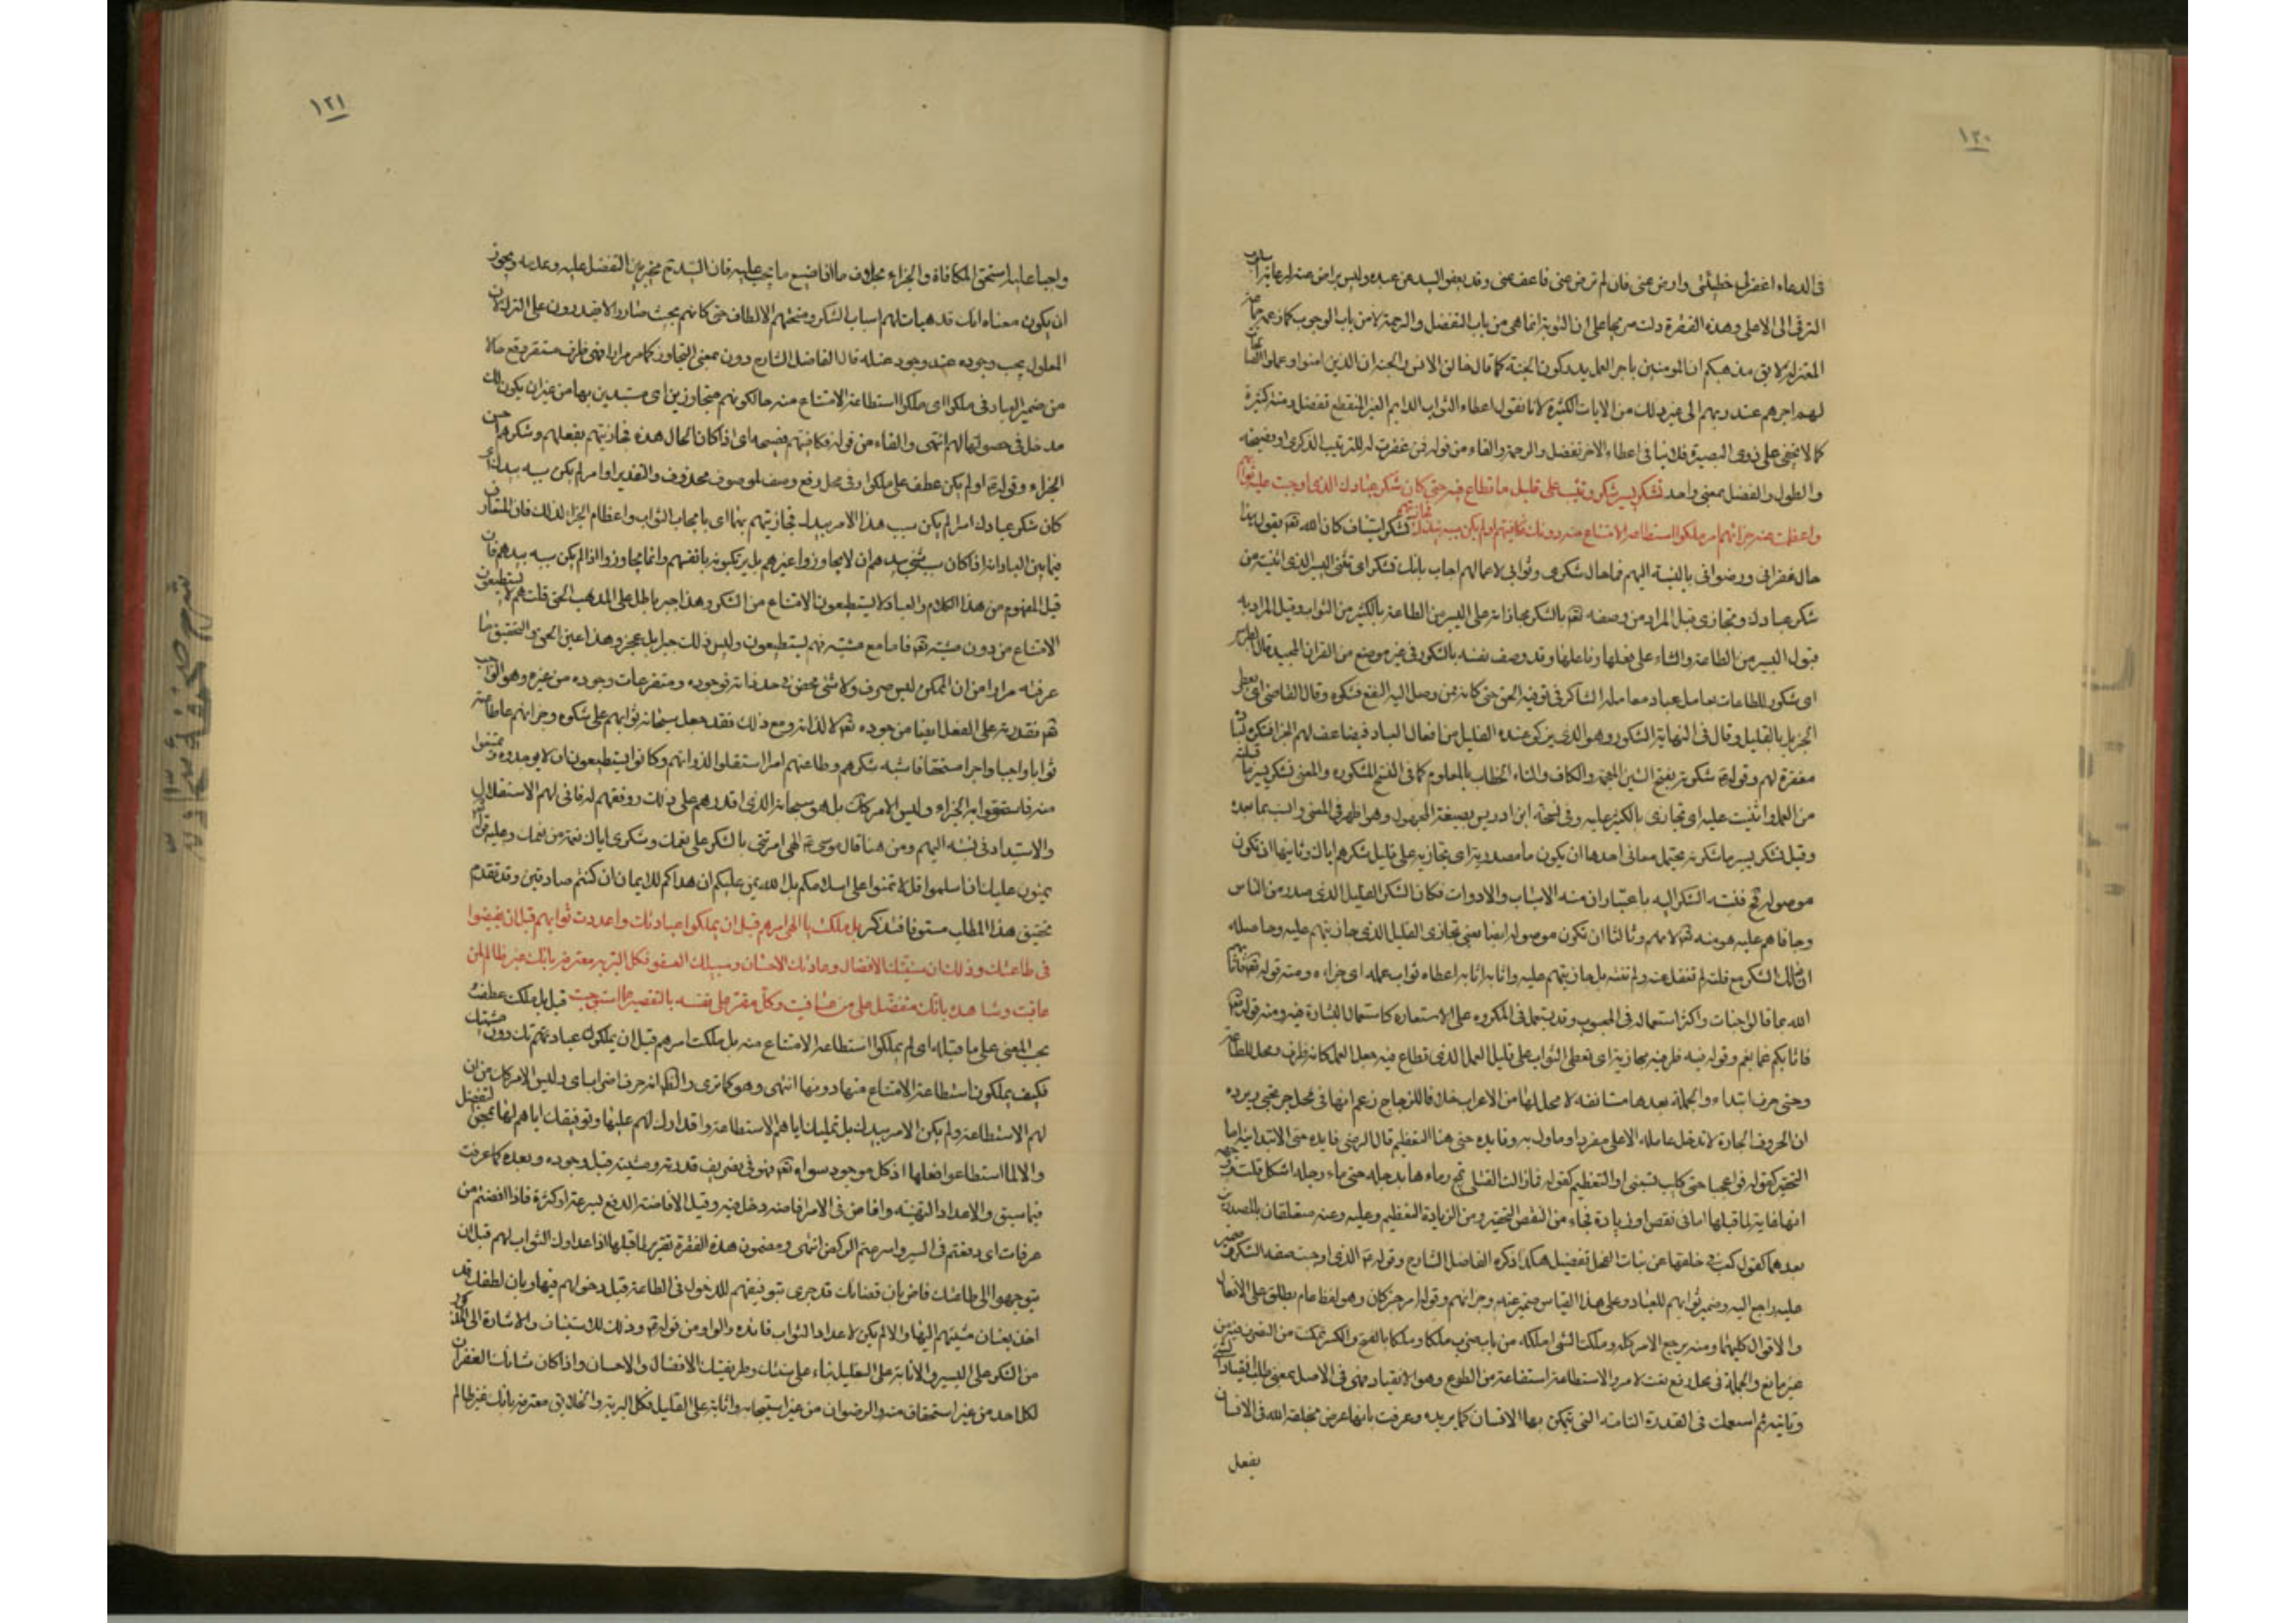 ١٢٠
فى الدعاء اغفر لى خطيئتى وارض عنى فان لم ترض عنى فاعف عنى وقد يعفو السيد عن عبده وليس براض عنه
الترقى الى الاعلى وهذه الفقرة دلت صريحا على ان التوبة انما هى من باب التفضل والرحمة لا من باب الوجوب كما زعمه
المعتزلة لا يق مذهبكم ان المومنين باجر العمل يدركون الجنة كما قال خالق الانس والجنة ان الذين امنوا وعملوا الصا
لهم اجرهم عند ربهم الى غير ذلك من الايات الكثيرة لانا نقول اعطاء الثواب الدايم الغير المنقطع تفضل ومنة كثيرة
كما لا يخفى على ذوى البصيرة فلا ينافى اعطاء الاجر تفضل والرحمة والفاء من قوله فمن غفرت له للترتيب الذكرى او فصيحة
والطول والفضل بمعنى واحد تشكر يسير ما شكر وتثيب على قليل ما تطاع فيه حتى كان شكر عبادك الذى اوجبت عليه ثوابهم
واعظمت عنه جزائهم امر ملكوا استطاعة الامتناع منه دونك فكافيتهم او لم يكن سببه بيدك فجازيتهم تشكر استيناف كان الله تعم يقول
حال غفرانى ورضوانى بالنسبة اليهم فما حال شكرى وثوابى لاعمالهم اجاب بانك تشكر اى تثنى اليسير الذى اتيته من
شكر عبادك وتجازى قيل المراد من وصفه تعم بالشكر مجازاته على اليسير من الطاعة بالكثير من الثواب وقيل المراد به
قبول اليسير من الطاعة والثناء على فعلها وفاعلها وقد وصف نفسه بالشكور فى غير موضع من القران المجيد قال
اى شكور للطاعات يعامل عباده معاملة الشاكر فى توفية الحق حتى كانه ممن وصل اليه النفع فشكره وقال القاضى اى يعطى
الجزيل بالقليل وقال فى النهاية الشكور هو الذى يزكو عنده القليل من افعال العباد فيضاعف لهم الجزاء فشكره لعباده
مغفرة لهم وقوله شكرته بفتح الشين المعجمة والكاف والتاء الخطاب بالمعلوم كما فى النسخ المشهورة والمعنى تشكر يسير ما قبلته
من العمل واثنيت عليه اى تجازى بالكثير عليه وفى نسخة ابن ادريس بصيغة المجهول وهو اظهر فى المعنى وانسب بما بعده
وقيل تشكر يسير ما شكرته يحتمل معانى احدها ان يكون ما مصدرية اى تجازيه على قليل شكرهم اياك وثانيها ان تكون
موصولة فح نسبة الشكر اليه باعتبار ان منه الاسباب والادوات فكان الشكر القليل الذى صدر من الناس
وجازاهم عليه هو منه تعم لا منهم وثالثا ان تكون موصولة ايضا يعنى تجازى القليل الذى جازيتهم عليه وحاصله
ان ذلك الشكر مع قلته لم تغفل عنه ولم تنسه بل جازيتهم عليه واثابه اثابة اعطاه ثواب عمله اى جزاءه ومنه قوله تعم فاثابهم
الله بما قالوا جنات واكثر استعماله فى المحبوب وقد يستعمل فى المكروه على الاستعارة كاستعمال البشارة فيه ومنه قوله تعم
فاثابكم غما بغم وقوله فيه ظرفية مجازية اى تعطى الثواب على قليل العمل الذى تطاع فيه جعل العمل كانه ظرف ومحل للطاعة
وحتى حرف ابتداء والجملة بعدها مستانفة لا محل لها من الاعراب خلافا للزجاج زعم انها فى محل جر بحتى ويرده
ان الحروف الجارة لا تدخل عاملة الا على مفرد او ماول به وفايدة حتى هنا التعظيم قال الرضى فايدة حتى الابتدائية اما
التحقير كقوله فواعجبا حتى كليب تسبنى او التعظيم كقوله فما زالت القتلى تمج دماءها بدجلة حتى ماء دجلة اشكل قلت
انها غاية لما قبلها اما فى نقص او زيادة فجاء من النقص التحقير ومن الزيادة التعظيم وعليه وعنه متعلقان بالمصدرين
بعدهما كقول كعب فى خلقها عن بنات الفحل تفضيل هكذا ذكره الفاضل الشارح وقوله الذى اوجبت صفة الشكر وضمير
عليه راجع اليه وضمير ثوابهم للعباد وعلى هذا القياس ضمير عنه وجزائهم وقوله امر خبر كان وهو لفظ عام يطلق على الافعال
والاقوال كليهما ومنه يرجع الامر كله وملكت الشئ املكه من باب ضرب ملكا وملكا بالفتح والكسر تمكنت من التصرف فيه من
غير مانع والجملة فى محل رفع نعت لامر والاستطاعة استفعالة من الطوع وهو الانقياد فهى فى الاصل بمعنى طلب انقياد الشئ
وتاتيه ثم استعملت فى القدرة التامة التى يتمكن بها الانسان كما يريده وعرفت بانها عرض يخلقه الله فى الانسان
يفعل
١٢١
واجبا عليه استحق المكافاة والجزاء بخلاف ما اذا ضيع ما يجب عليه فان السيد ح مخير بين التفضل عليه وعدمه ويجوز
ان يكون معناه انك قد هيات لهم اسباب الشكر ومنحتهم الالطاف حتى كانهم بحيث صاروا لا يقدرون على الترك لان
المعلول يجب وجوده عند وجود علته قال الفاضل الشارح دون بمعنى التجاوز كما مر مرارا فهى ظرف مستقر وقع حالا
من ضمير العباد فى ملكوا اى ملكوا استطاعة الامتناع منه حالكونهم متجاوزين اى مستبدين بها من غير ان يكون لك
مدخل فى حصولها لهم انتهى والفاء من قوله فكافيتهم فصيحة اى اذا كان الحال هذه فجازيتهم بفعلهم وشكرهم احسن
الجزاء وقوله او لم يكن عطف على ملكوا وفى محل رفع وصف لموصوف محذوف والتقدير او امر لم يكن سببه بيدك اى
كان شكر عبادك امرا لم يكن سبب هذا الامر بيدك فجازيتهم بهما اى بايجاب الثواب واعظام الجزاء لذلك فان المتعارف
فيما بين العباد انه اذا كان سبب شئ بيدهم ان لا يجاوزوا غيرهم بل يرتكبونه بانفسهم وانما يجاوزوا اذا لم يكن سببه بيدهم فان
قيل المفهوم من هذا الكلام والعباد لا يستطيعون الامتناع من الشكر وهذا جبر باطل على المذهب الحق قلت هم لا يستطيعون
الامتناع من دون مشيته تعم فاما مع مشيته فهم يستطيعون وليس ذلك جبر بل عجز وهذا عين الحق والتحقيق ما
عرفته مرارا من ان الممكن ليس صرف ولا شئ محض فى حد ذاته فوجوده ومتفرعات وجوده من غيره وهو الواجب
تعم فقدرته على الفعل ايضا من جوده تعم لا لذاته ومع ذلك فقد جعل سبحانه ثوابهم على شكره وجزائهم على طاعته
ثوابا واجبا واجرا مستحقا فاشبه شكرهم وطاعتهم امرا استقلوا لذواتهم وكانوا يستطيعون ان لا يوجدوه ويمتنعوا
منه فاستحقوا به الجزاء وليس الامر كك بل هو سبحانه الذى اقدرهم على ذلك ووفقهم له فانى لهم الاستقلال
والاستبداد فى نسبته اليهم ومن هنا قال موسى الهى امرتنى بالشكر على نعمك وشكرى اياك نعمة من نعمك وعليه قوله
يمنون عليك ان اسلموا قل لا تمنوا على اسلامكم بل الله يمن عليكم ان هداكم للايمان ان كنتم صادقين وقد تقدم
تحقيق هذا المطلب مستوفا فتذكر بل ملكت يا الهى امرهم قبل ان يملكوا عبادتك واعددت ثوابهم قبل ان يفيضوا
فى طاعتك وذلك ان سنتك الافضال وعادتك الاحسان وسبيلك العفو فكل البرية معترفة بانك غير ظالم لمن
عاقبت وشاهدة بانك متفضل على من عافيت وكل مقر على نفسه بالتقصير عما استوجبت قيل بل ملكت عطف
بحسب المعنى على ما قبله اى لم يملكوا استطاعة الامتناع منه بل ملكت امرهم قبل ان يملكوا عبادتهم لك دون مشيتك
فكيف يملكون استطاعة الامتناع منها دونها انتهى وهو كما ترى والظ انه حرف اضراب اى وليس الامر كك من ان
لهم الاستطاعة ولم يكن الامر بيدك بل تمليك اياهم الاستطاعة واقدارك لهم عليها وتوفيقك اياهم لها بمحض التفضل
والا لما استطاعوا فعلها اذ كل موجود سواه تعم فهو فى تصريف قدرته ومشيته قبل وجوده وبعده كما عرفت
فيما سبق والاعداد التهيئة وافاض فى الامر افاضة دخل فيه وقيل الافاضة الدفع بسرعة او كثرة فاذا افضتم من
عرفات اى دفعتم فى السير واسرعتم الركض انتهى ومضمون هذه الفقرة تقرير لما قبلها اذ اعدادك الثواب لهم قبل ان
يتوجهوا الى طاعتك قاض بان قضائك قد جرى بتوفيقهم للدخول فى الطاعة قبل دخولهم فيها وبان لطفك قد
اخذ بعنان مشيتهم اليها والا لم يكن لاعداد الثواب فائدة والواو من قوله وذلك للاستيناف والاشارة الى المذكور
من الشكر على اليسير والاثابة على القليل بناء على سنتك وطريقتك الافضال والاحسان واذا كان شانك الغفران
لكل احد من غير استحقاق منه والرضوان من غير استيجابه واثابة على القليل فكل البرية والخلايق معترفة بانك غير ظالم